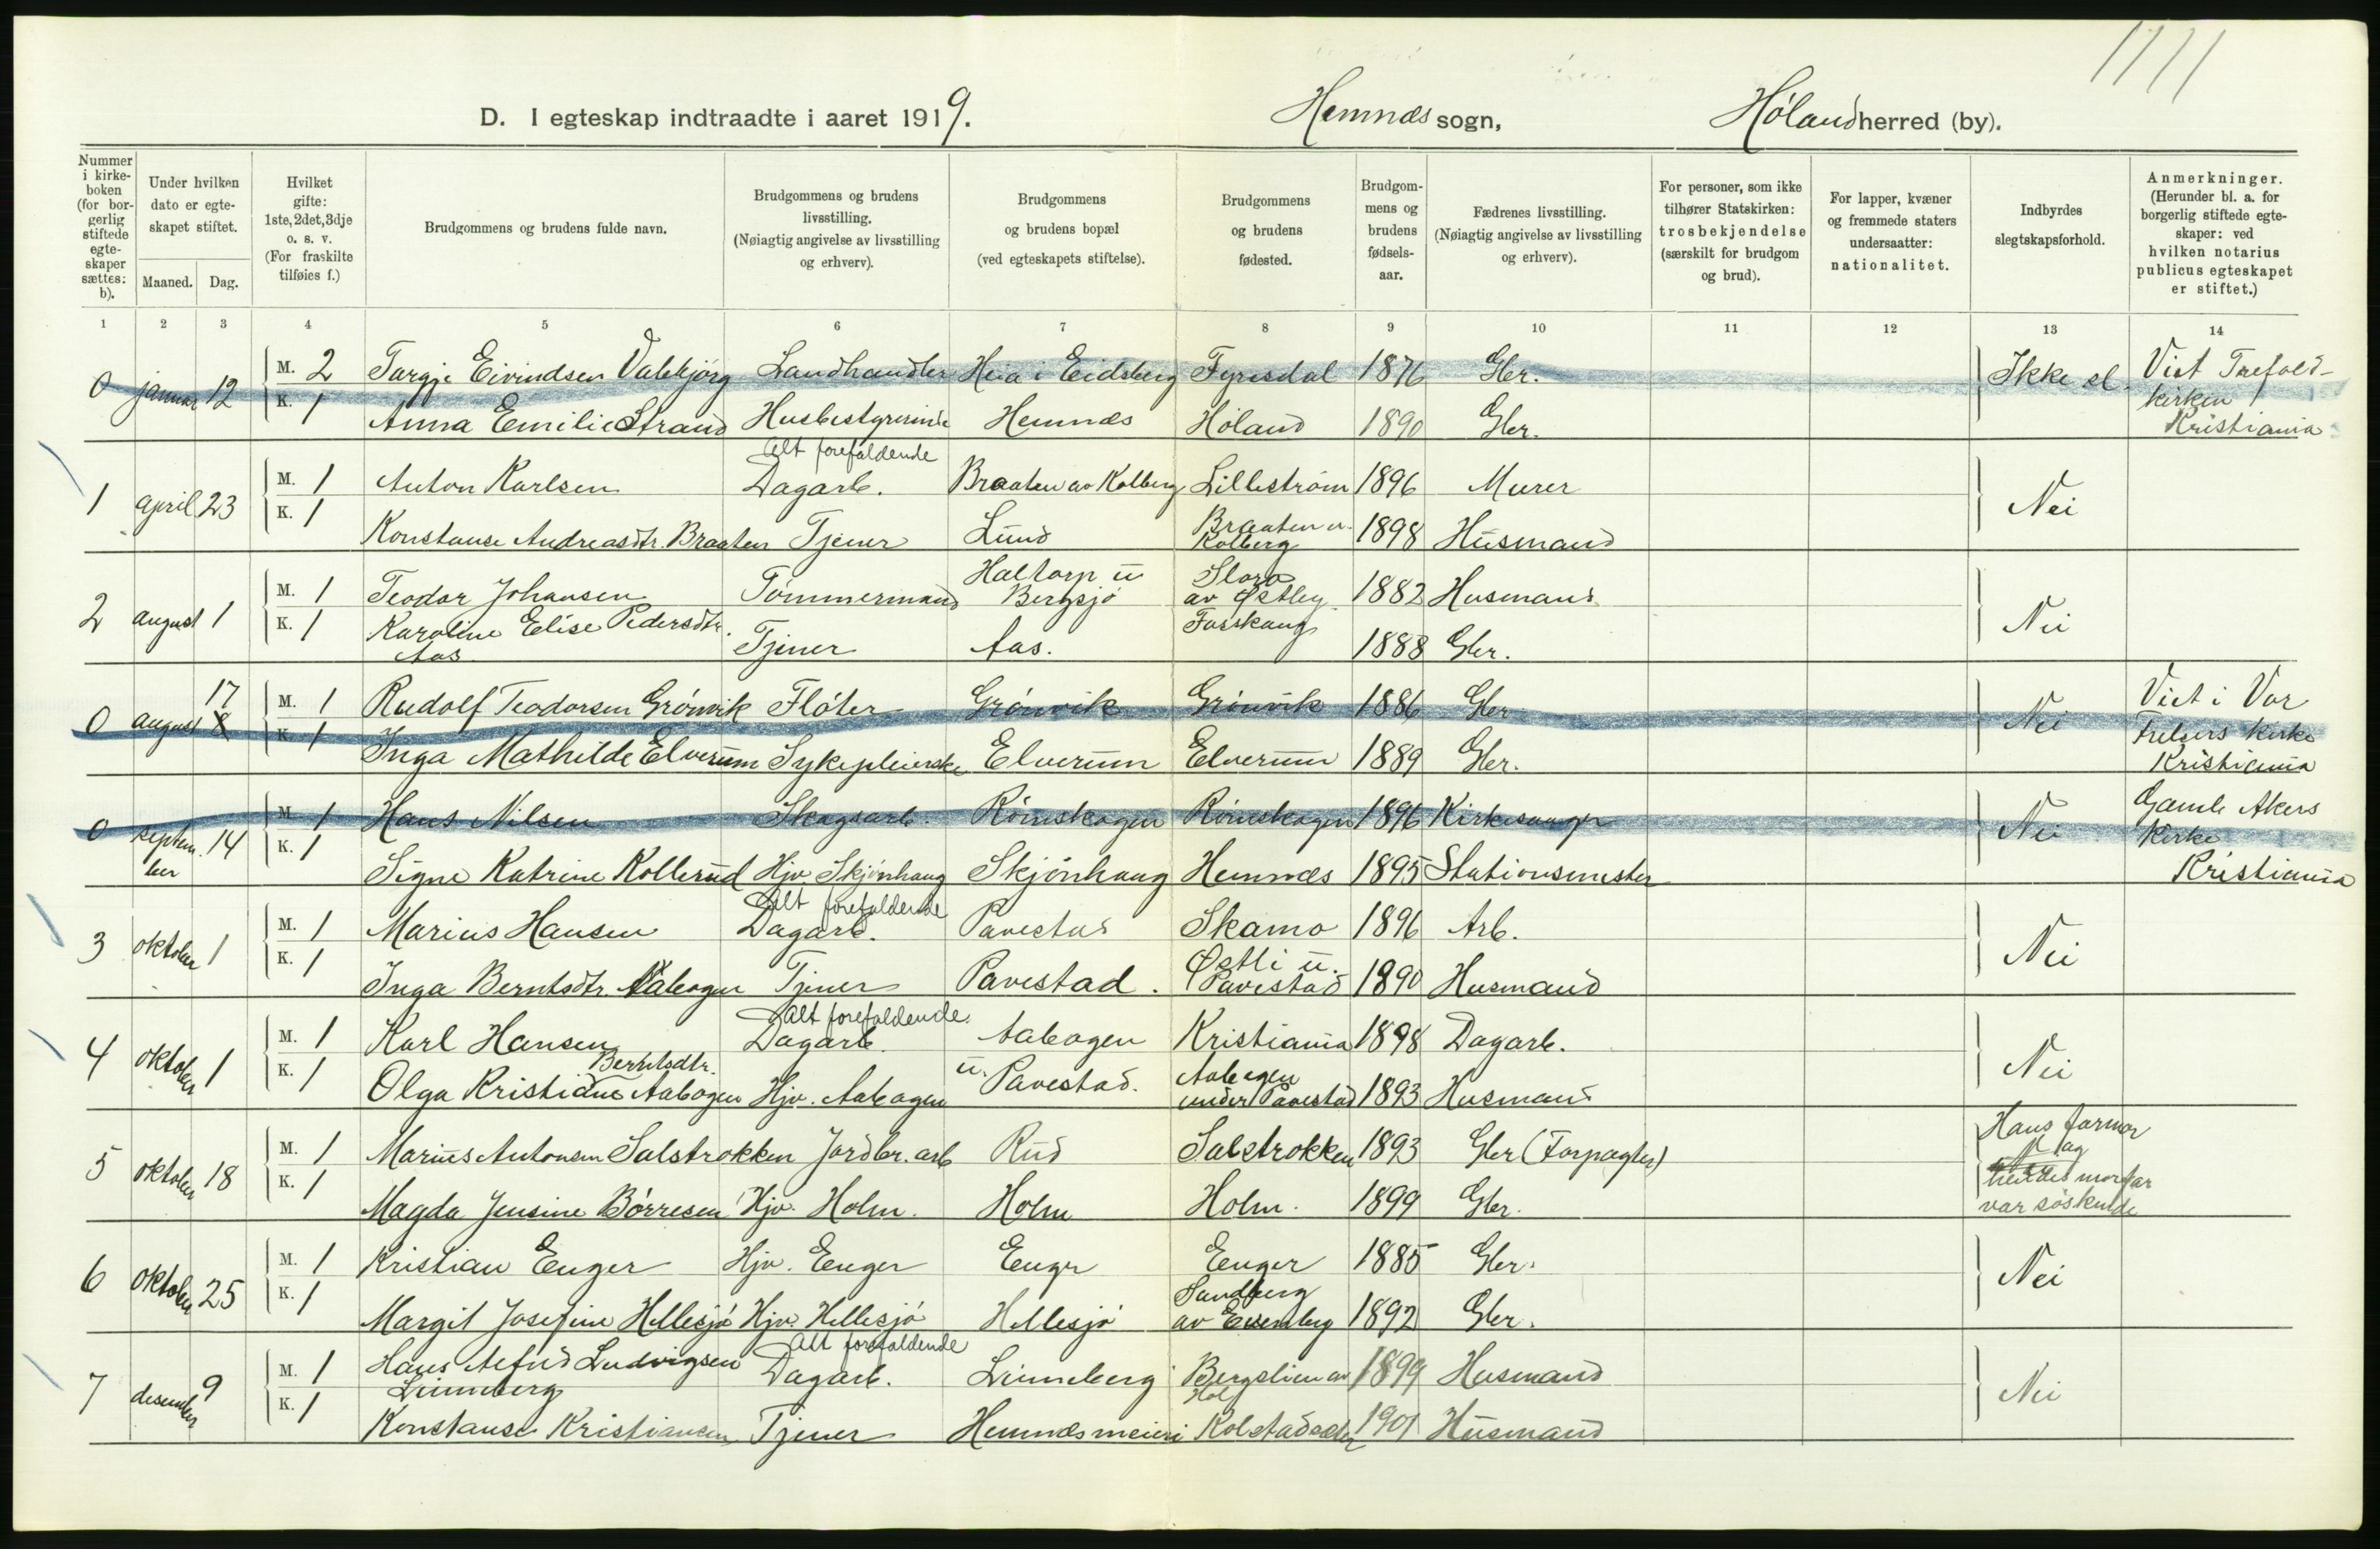 1711
D. I egteskap indtraadte i aaret 1919. Hemnæs sogn, Høland herred (by).
Nummer i kirkeboken (for borgerlig stiftede egteskaper sættes: b).
Under hvilken dato er egteskapet stiftet.
Maaned. Dag.
Hvilket gifte: 1ste, 2det, 3dje o. s. v. (For fraskilte tilføies f.)
Brudgommens og brudens fulde navn.
Brudgommens og brudens livsstilling. (Nøiagtig angivelse av livsstilling og erhverv).
Brudgommens og brudens bopæl (ved egteskapets stiftelse).
Brudgommens og brudens fødested.
Brudgommens og brudens fødselsaar.
Fædrenes livsstilling. (Nøiagtig angivelse av livsstilling og erhverv).
For personer, som ikke tilhører Statskirken: trosbekjendelse (særskilt for brudgom og brud).
For lapper, kvæner og fremmede staters undersaatter: nationalitet.
Indbyrdes slegtskapsforhold.
Anmerkninger. (Herunder bl. a. for borgerlig stiftede egteskaper: ved hvilken notarius publicus egteskapet er stiftet.)
1 2 3 4 5 6 7 8 9 10 11 12 13 14
0 januar 12 M. 2 Targje Eivindsen Valebjørg Landhandler Heia i Eidsberg Fyresdal 1876 Gbr. Ikke sl. Viet Trefold-
kirken
K. 1 Anna Emilie Strand Husbestyrerinde Hemnæs Høland 1890 Gbr. Kristiania
Alt forefaldende
1 april 23 M. 1 Anton Karlsen Dagarb. Braaten av Kolberg Lilleström 1896 Murer Nei
K. 1 Konstanse Andreasdtr. Braaten Tjener Lund Braaten u. Kolberg 1898 Husmand
2 august 1 M. 1 Teodor Johansen Tømmermand Haltorp u Bergsjø Slora av Østby 1882 Husmand Nei
K. 1 Karoline Elise Pedersdtr. Aas Tjener Aas. Fosskaug 1888 Gbr.
17
0 august 8 M. 1 Rudolf Teodorsen Grönvik Fløter Grönvik Grönvik 1886 Gbr Nei Viet i Vor
Frelsers kirke
K. 1 Inga Mathilde Elverum Sykepleierske Elverum Elverum 1889 Gbr. Kristiania
0 september 14 M. 1 Hans Nilsen Skogsarb. Römskogen Römskogen 1896 Kirkesanger Nei Gamle Akers
kirke
K. 1 Signe Katrine Kollerud Hjv. Skjønhaug Skjønhaug Hemnæs 1895 Stationsmester Kristiania
Alt forefaldende
3 oktober 1 M. 1 Marius Hansen Dagarb. Pavestad Skamo 1896 Arb. Nei
K. 1 Inga Berntsdtr. Aabogen Tjener Pavestad. Østli u. Pavestad 1890 Husmand
Alt forefaldende
4 oktober 1 M. 1 Karl Hansen Dagarb. Aabogen Kristiania 1898 Dagarb. Nei
K. 1 Olga Kristiane Berntsdtr. Aabogen Hjv. Aabogen u. Pavestad. Aabogen under Pavestad 1893 Husmand
5 oktober 18 M. 1 Marius Antonsen Salstrokken Jordbr. arb Rud Salstrokken 1893 Gbr (Forpagter) Hans farmor
og
hendes morfar
K. 1 Magda Jensine Børresen Hjv. Holm. Holm Holm. 1899 Gbr. var søskende
6 oktober 25 M. 1 Kristian Enger Hjv. Enger Enger Enger 1885 Gbr. Nei
K. 1 Margit Josefine Hellesjø Hjv. Hellesjø Hellesjø Sandberg av 1892 Gbr.
Alt forefaldende
7 desember 9 M. 1 Hans Alfred Ludvigsen Linneberg Dagarb. Linneberg Bergslien av Hol 1899 Husmand Nei
K. 1 Konstanse Kristiansen Tjener Hemnæs meieri Kolstad 1901 Husmand